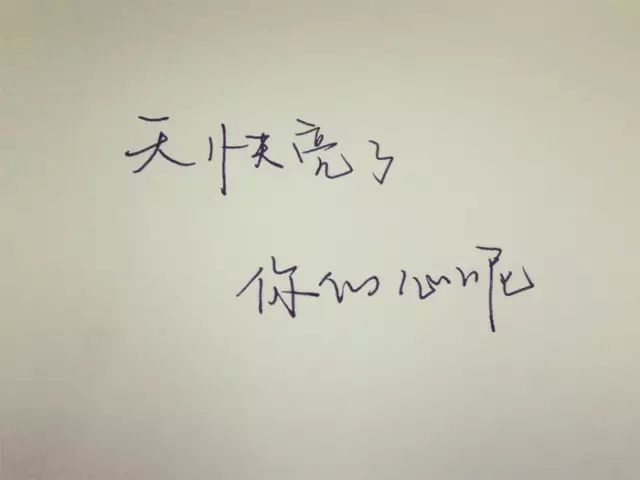 天快亮了
你的心呢